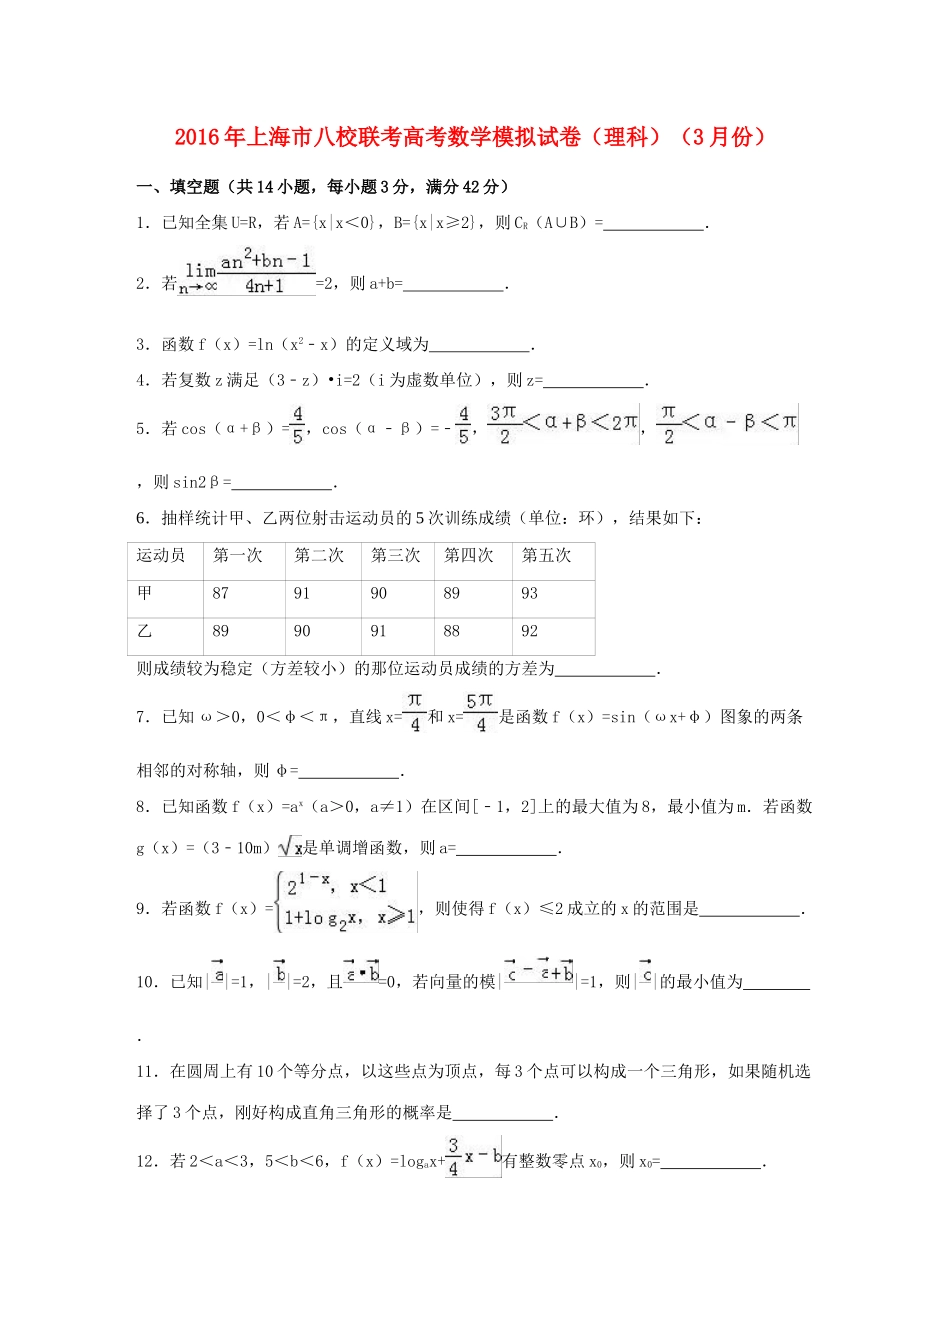 2016年上海市八校联考高考数学模拟试卷（理科）（3月份）
一、填空题（共14小题，每小题3分，满分42分）
1．已知全集U=R，若A={x|x＜0}，B={x|x≥2}，则C_R（A∪B）=____________．
2．若lim_{n→∝} (an²+bn－1)/(4n+1)=2，则a+b=____________．
3．函数f（x）=ln（x²﹣x）的定义域为____________．
4．若复数z满足（3﹣z）•i=2（i为虚数单位），则z=____________．
5．若cos（α+β）=4/5，cos（α﹣β）=﹣4/5，3π/2＜α+β＜2π，π/2＜α－β＜π
，则sin2β=____________．
6．抽样统计甲、乙两位射击运动员的5次训练成绩（单位：环），结果如下：
运动员 第一次 第二次 第三次 第四次 第五次
甲 87 91 90 89 93
乙 89 90 91 88 92
则成绩较为稳定（方差较小）的那位运动员成绩的方差为____________．
7．已知ω＞0，0＜φ＜π，直线x=π/4和x=5π/4是函数f（x）=sin（ωx+φ）图象的两条
相邻的对称轴，则φ=____________．
8．已知函数f（x）=aˣ（a＞0，a≠1）在区间[﹣1，2]上的最大值为8，最小值为m．若函数
g（x）=（3﹣10m）√x是单调增函数，则a=____________．
9．若函数f（x）={2^{1－x}，x＜1
1+log₂x，x≥1，则使得f（x）≤2成立的x的范围是____________．
10．已知|a⃗|=1，|b⃗|=2，且a⃗•b⃗=0，若向量的模|c⃗－a⃗+b⃗|=1，则|c⃗|的最小值为________
．
11．在圆周上有10个等分点，以这些点为顶点，每3个点可以构成一个三角形，如果随机选
择了3个点，刚好构成直角三角形的概率是____________．
12．若2＜a＜3，5＜b＜6，f（x）=logₐx+3/4x－b有整数零点x₀，则x₀=____________．